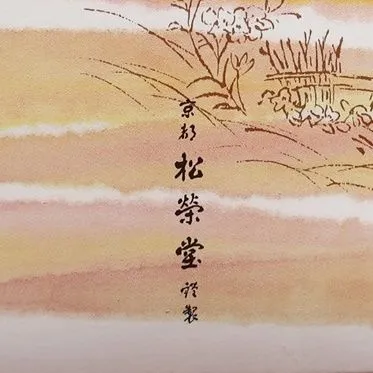 京都 松榮堂 謹製